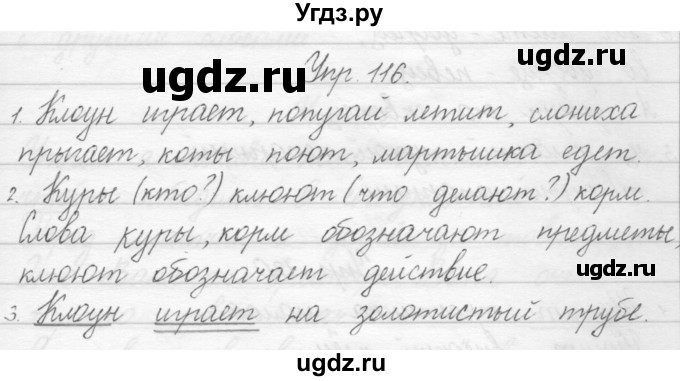 Угдз.ру
Упр. 116.
1. Клоун играет, попугай летит, слониха
прыгает, коты поют, мартышка едет.
2. Куры (кто?) клюют (что делают?) корм.
Слова куры, корм обозначают предметы,
клюют обозначает действие.
3. Клоун играет на золотистый трубе.
ugdz.ru
ugdz.ru
ugdz.ru
ugdz.ru
ugdz.ru
ugdz.ru
ugdz.ru